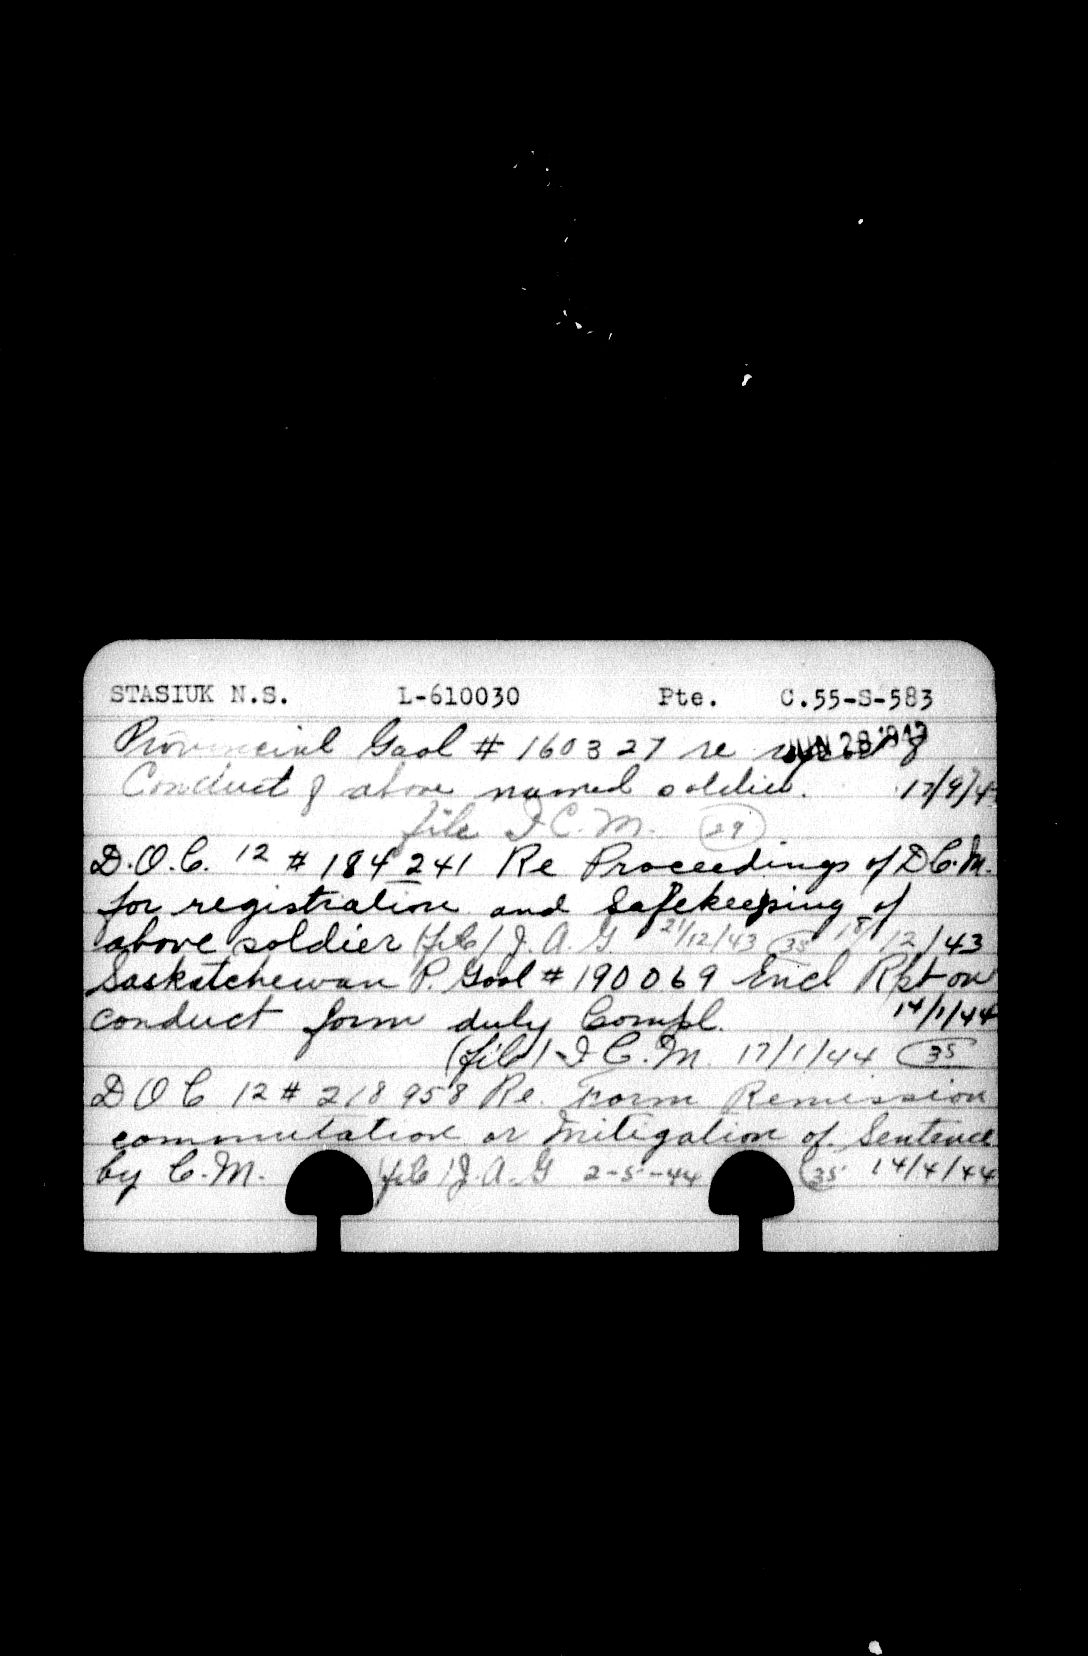 STASIUK N.S. L-610030 Pte. C.55-S-583
JUN 28 1943
Provincial Gaol # 160327 re report of
Conduct of above named soldier. 17/9/4
file I C. M. 29
D.O.C. 12 # 184241 Re Proceedings of D C.M.
for registration and Safekeeping of
above soldier (file) J. A. G 21/12/43 35 18/12/43
Saskatchewan P. Gaol # 190069 Encl Rpt on
conduct form duly Compl. 14/1/44
(file) I C. M. 17/1/44 35
D O C 12 # 218958 Re. Form Remission
commutation or Mitigation of Sentence
by C.M. file J.A.G 2-5-44 35 14/4/44